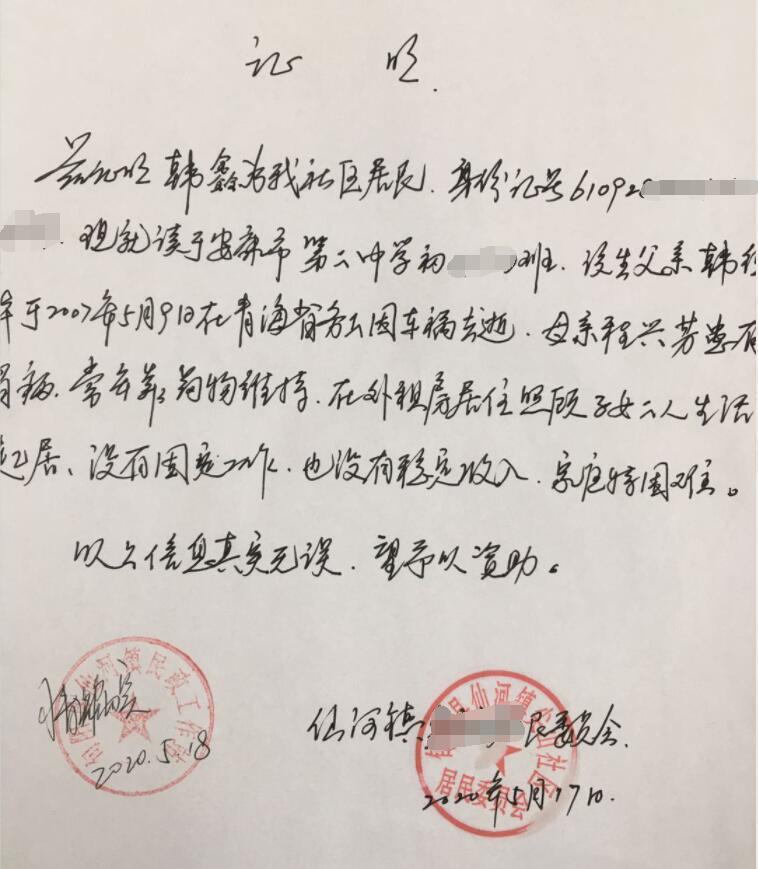 证 明
兹证明韩鑫为我社区居民.身份证号610928
现就读于安康市第二中学初 班.该生父亲韩
于2007年5月9日在青海省务工因车祸去逝.母亲程兴芳患有
胃病.常年靠药物维持.在外租房居住照顾子女二人生活
起居、没有固定工作.也没有稳定收入.家庭特困难。
以上信息真实无误.望予以资助。
仙河镇民政工作
2020.5.18
仙河镇 民委员会.
县仙河镇 社区
居民委员会
2020年5月17日.